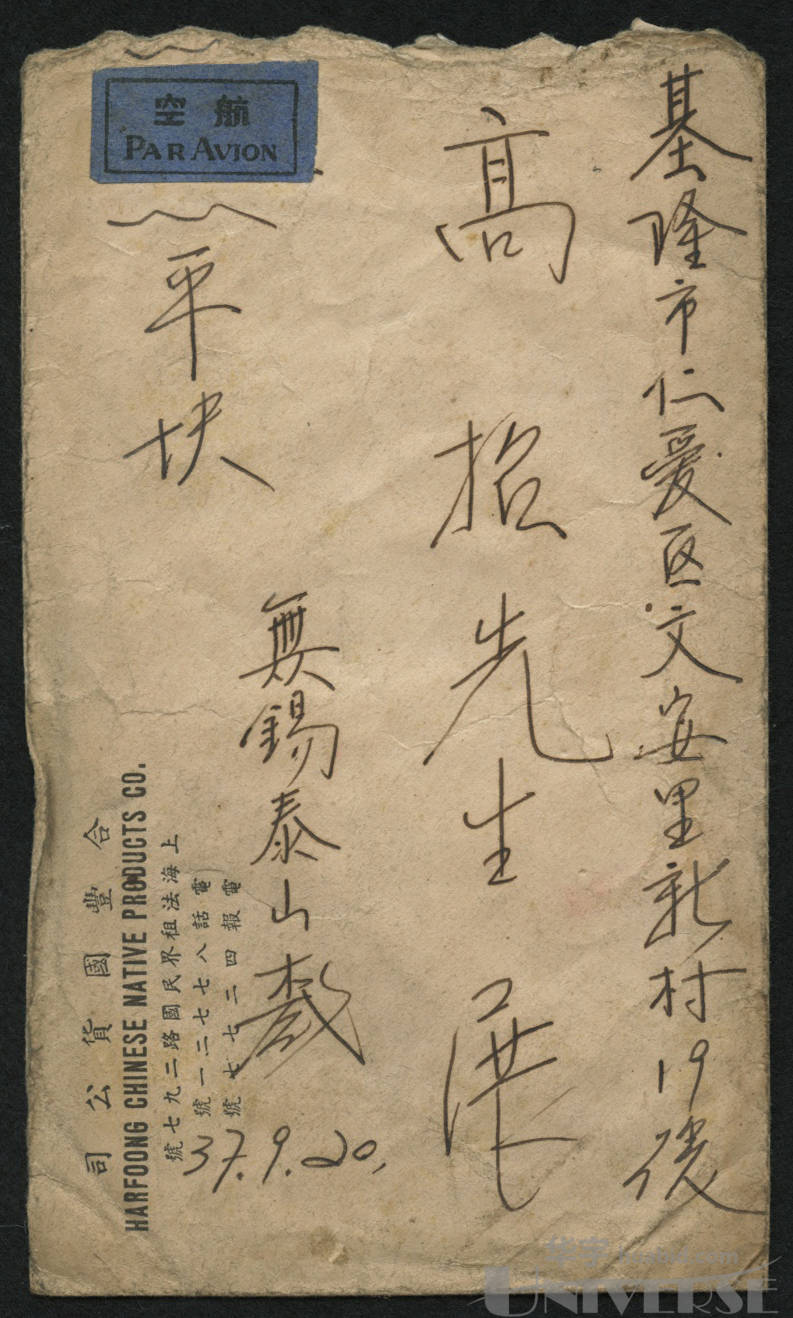 基隆市仁愛区文安里新村19後
高招先生展
無錫泰山
37.9.20.
平块
航空
PAR AVION
合豐國貨公司
HARFOONG CHINESE NATIVE PRODUCTS CO.
上海法租界民國路二九七號
電話八七七二一號
電報四二七七號
华宇
UNIVERSE